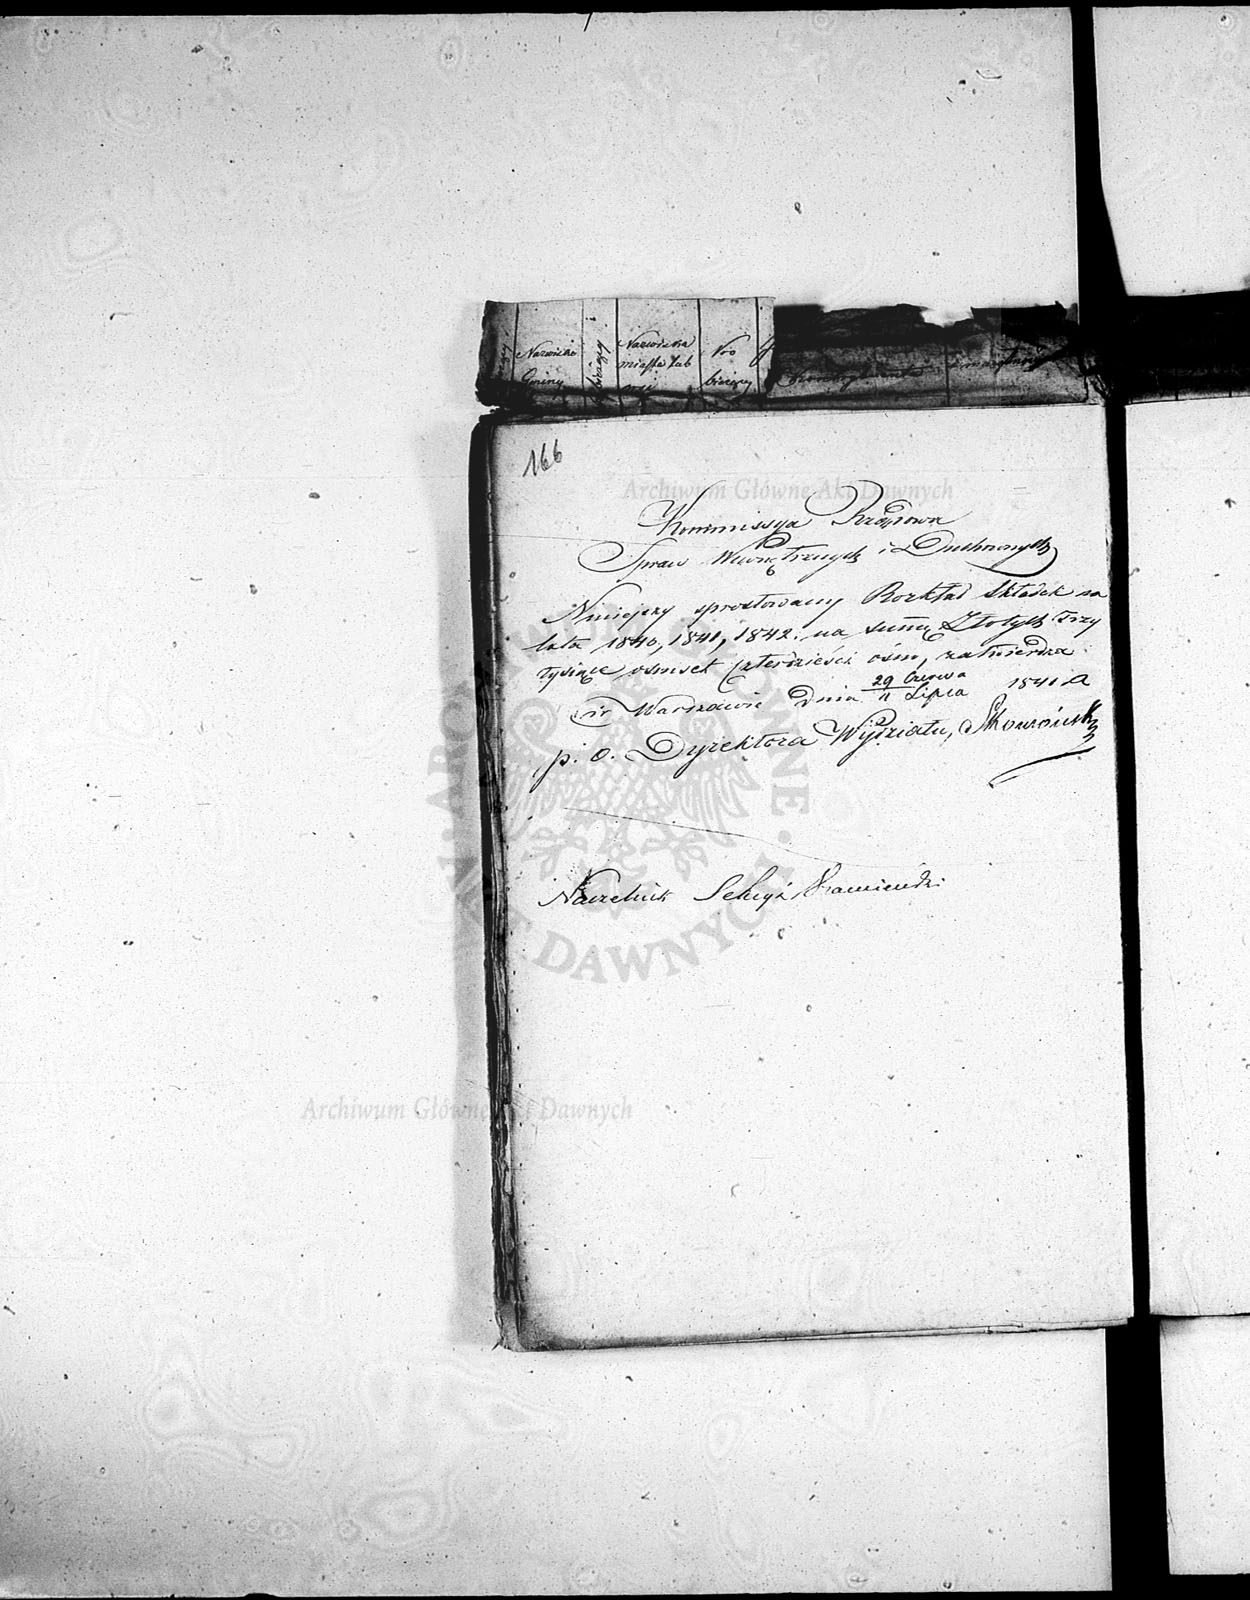 Nazwisko Gminy
Nazwiska miasta lub wsi
Nro bieżący
166
Archiwum Główne Akt Dawnych
Kommissya Rządowa
Spraw Wewnętrznych i Duchownych
Niniejszy sprostowany Rozkład Składek na
lata 1840, 1841, 1842. na summę Złotych Trzy
tysiące ośmset czterdzieści ośm, zatwierdza
w Warszawie Dnia 29 Czerwca / 11 Lipca 1841 R
p. o. Dyrektora Wydziału,
Naczelnik Sekcyi
DAWNYCH
Archiwum Główne Akt Dawnych